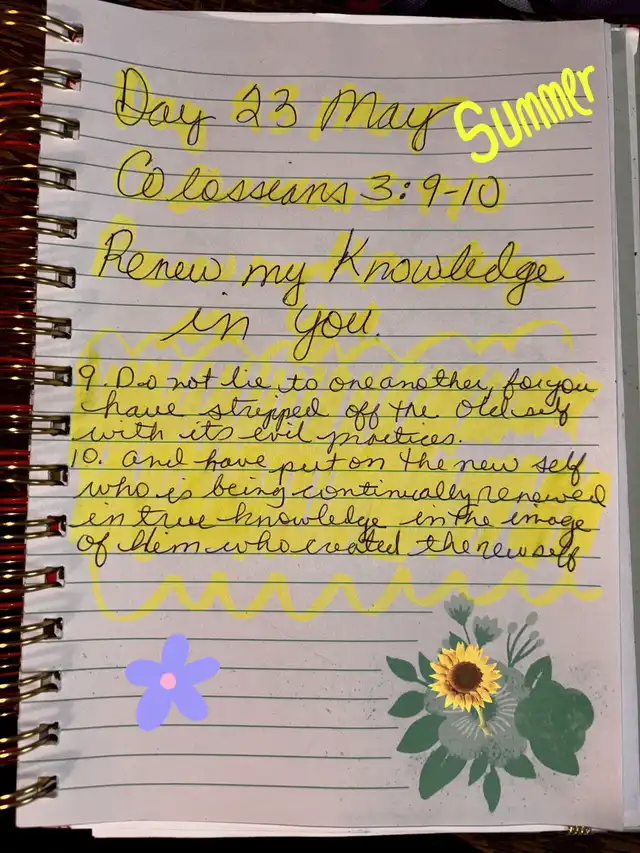 Day 23 May
Summer
Colossians 3:9-10
Renew my Knowledge
in you.
9. Do not lie to one another, for you
have stripped off the old self
with its evil practices.
10. and have put on the new self
who is being continually renewed
in true knowledge in the image
of Him who created the new self